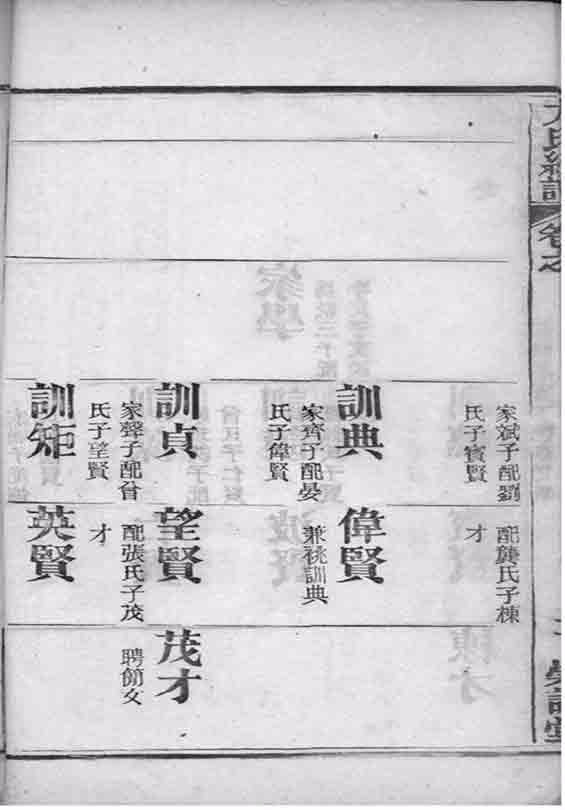 氏續譜
卷之
家斌子配劉
氏子賓賢
訓典
家齊子配晏
氏子偉賢
訓貞
家聲子配曾
氏子望賢
訓矩
配龔氏子棟
才
偉賢
兼祧訓典
望賢
配張氏子茂
才
英賢
茂才
聘簡女